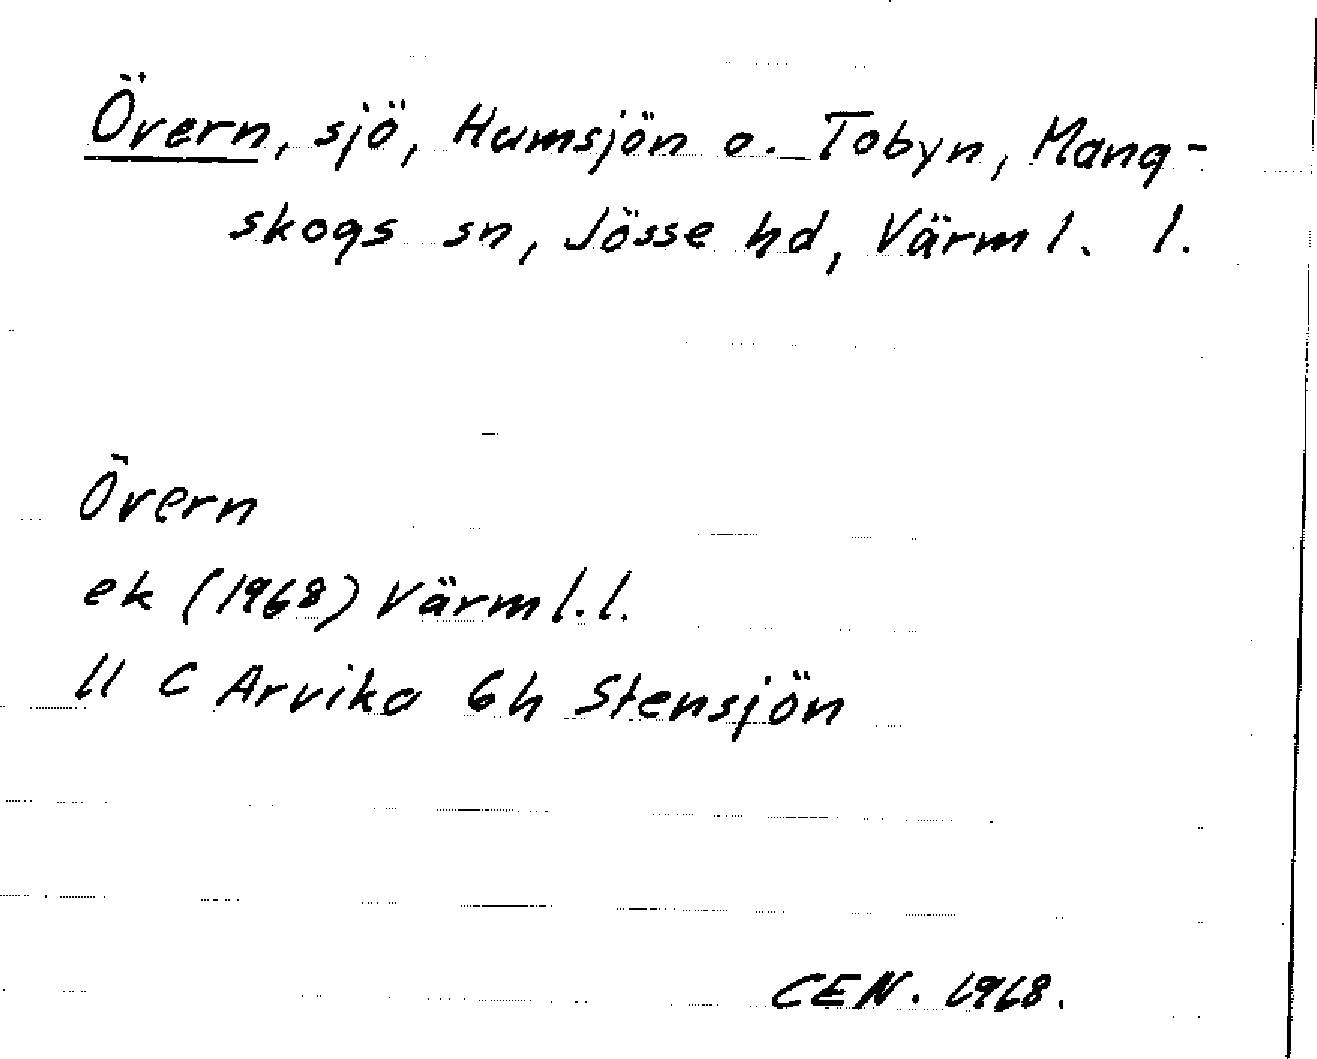 Övern, sjö, Humsjön o. Tobyn, Mang-
skogs sn, Jösse hd, Värml. l.
Övern
ek (1968) Värml. l.
11 C Arvika 6h Stensjön
CEN. 1968.